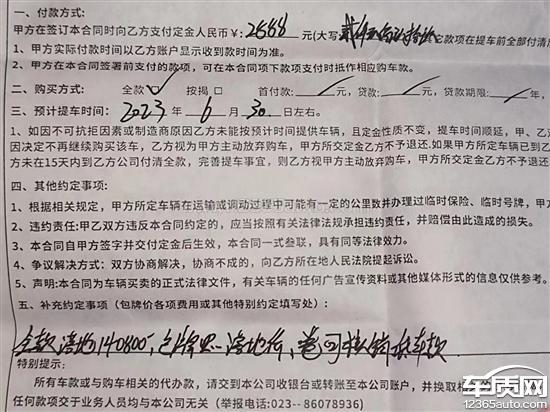 一、付款方式:
甲方在签订本合同时向乙方支付定金人民币￥: 2888 元(大写 其它款项在提车前全部付清
1、甲方实际付款时间以乙方账户显示收款时间为准。
2、甲方在本合同签署前支付的款项,可在本合同项下款项支付时抵作相应购车款。
二、购买方式: 全款 ✓ 按揭 □ 首付款: / 元,贷款: / 元,贷款期限: / 年,
三、预计提车时间: 2023 年 6 月 30 日左右。
1、如因不可抗拒因素或制造商原因乙方未能按预计时间提供车辆,且定金性质不变,提车时间顺延,甲、乙
因决定不再继续购买该车,乙方视为甲方主动放弃购车,甲方所交定金乙方不予退还.如果甲方所定车辆已到乙
方未在15天内到乙方公司付清全款,完善提车事宜,则乙方视甲方主动放弃购车,甲方所交定金乙方不予退还
四、其他约定事项:
1、根据相关规定,甲方所定车辆在运输或调动过程中可能有一定的公里数并办理过临时保险、临时号牌,甲方
2、违约责任:甲乙双方违反本合同约定的,应当按照有关法律法规承担违约责任,并赔偿由此造成的损失。
3、本合同自甲方签字并交付定金后生效,本合同一式叁联,具有同等法律效力。
4、争议解决方式:双方协商解决,协商不成的,向乙方所在地人民法院提起诉讼。
5、声明:本合同为车辆买卖的正式法律文件,有关车辆的任何广告宣传资料或其他媒体形式的信息仅供参考。
五、补充约定事项(包牌价各项费用或其他特别约定填写处):
全款落地140800,包牌照一落地价,
特别提示:
所有车款或与购车相关的代办款,请交到本公司收银台或转账至本公司账户,并换取
任何款项交于业务人员均与本公司无关(举报电话:023--86078936)
车质网
12365auto.com